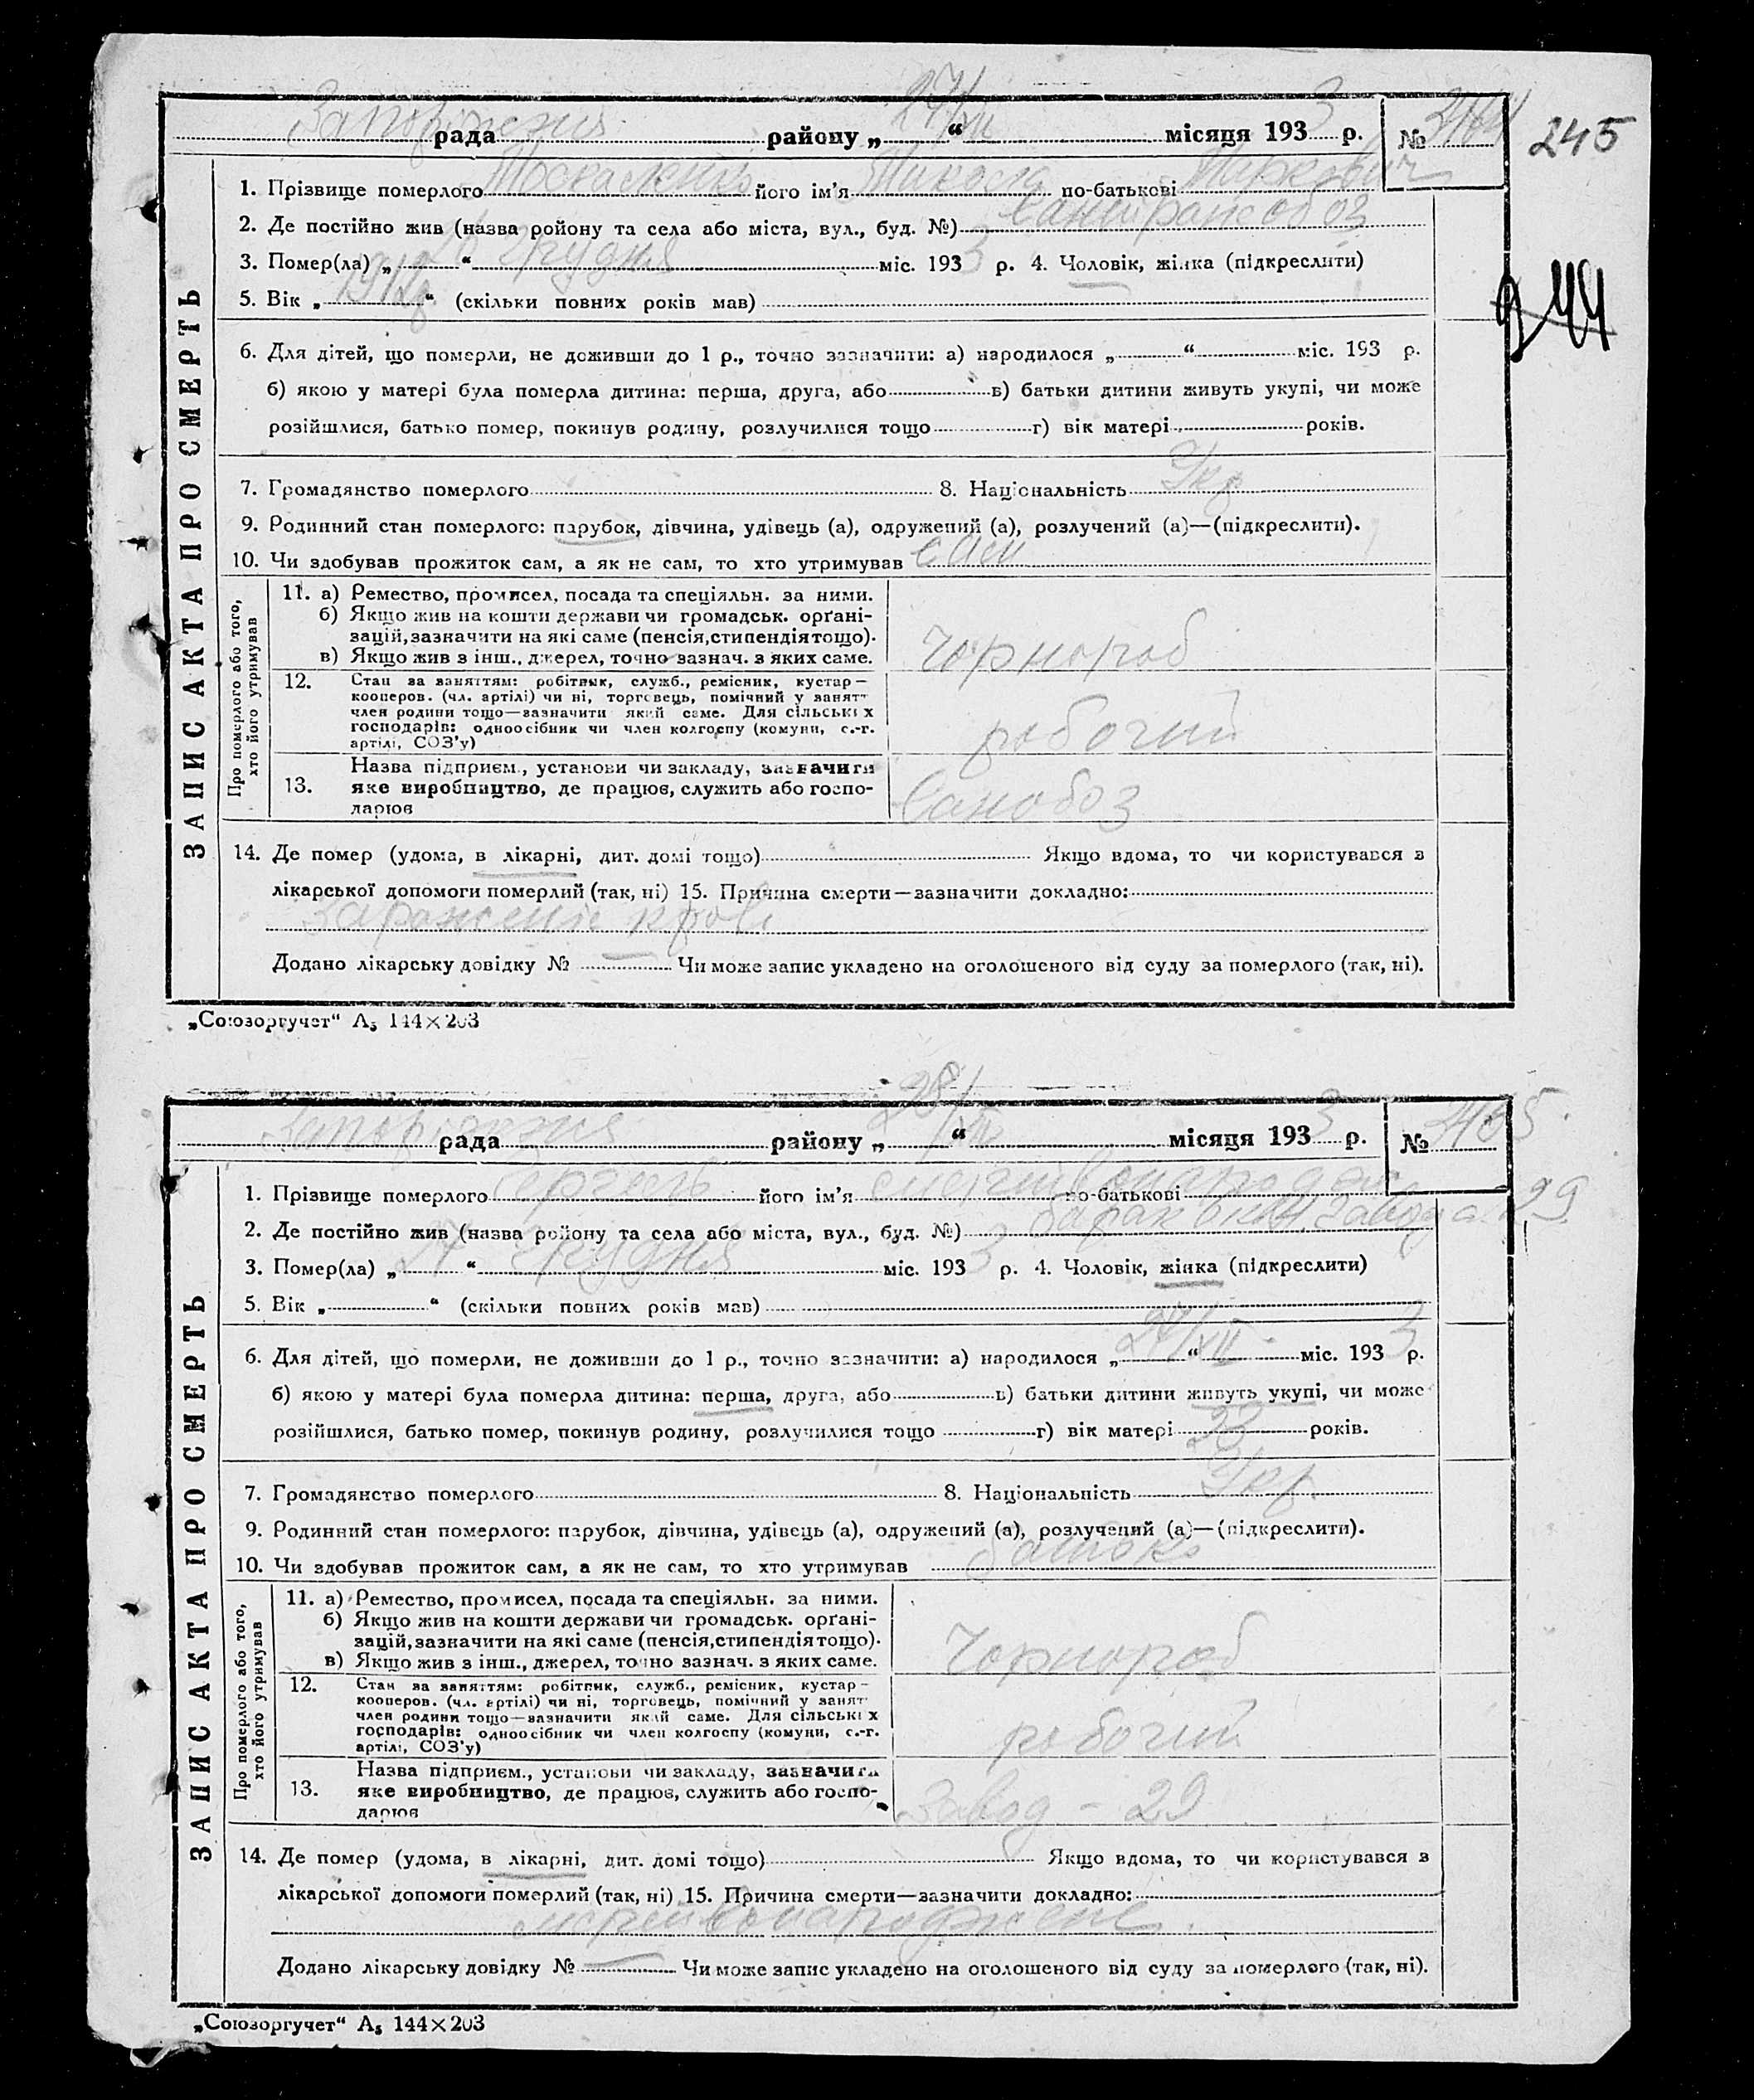 Запоріжжя рада району „ 27/XII “ місяця 193 3 р. № 3164
245
1. Прізвище померлого його ім'я Микола по-батькові Маркович
2. Де постійно жив (назва району та села або міста, вул., буд. №) Сантрансобоз
3. Помер(ла) „ 26 “ грудня міс. 193 3 р. 4. Чоловік, жінка (підкреслити)
5. Вік „ 1912р. “ (скільки повних років мав)
244
6. Для дітей, що померли, не доживши до 1 р., точно зазначити: а) народилося „ “ міс. 193 р.
б) якою у матері була померла дитина: перша, друга, або в) батьки дитини живуть укупі, чи може
розійшлися, батько помер, покинув родину, розлучилися тощо г) вік матері років.
7. Громадянство померлого 8. Національність Укр
9. Родинний стан померлого: парубок, дівчина, удівець (а), одружений (а), розлучений (а)—(підкреслити).
10. Чи здобував прожиток сам, а як не сам, то хто утримував сам
ЗАПИС АКТА ПРО СМЕРТЬ
Про померлого або того, хто його утримував
11. а) Ремество, промисел, посада та спеціяльн. за ними.
б) Якщо жив на кошти держави чи громадськ. орґані-
зацій, зазначити на які саме (пенсія, стипендія тощо).
в) Якщо жив з інш., джерел, точно зазнач. з яких саме.
Чорнороб
12. Стан за заняттям: робітник, служб., ремісник, кустар—
кооперов. (чл. артілі) чи ні, торговець, помічний у занятт
член родини тощо—зазначити який саме. Для сільських
господарів: одноосібник чи член колгоспу (комуни, с.-г.
артілі, СОЗ'у)
робочий
13. Назва підприєм., установи чи закладу, зазначити
яке виробництво, де працює, служить або госпо-
дарює
Санобоз
14. Де помер (удома, в лікарні, дит. домі тощо) Якщо вдома, то чи користувався з
лікарської допомоги померлий (так, ні) 15. Причина смерти—зазначити докладно:
Зараженіє крові
Додано лікарську довідку № Чи може запис укладено на оголошеного від суду за померлого (так, ні).
„Союзоргучет“ А5 144×203
Запоріжжя рада району „ 28/XII “ місяця 193 3 р. № 3165
1. Прізвище померлого його ім'я мертвонароджене по-батькові
2. Де постійно жив (назва району та села або міста, вул., буд. №) барак завода 29
3. Помер(ла) „ 27 “ грудня міс. 193 3 р. 4. Чоловік, жінка (підкреслити)
5. Вік „ “ (скільки повних років мав)
6. Для дітей, що померли, не доживши до 1 р., точно зазначити: а) народилося „ 27/XII “ міс. 193 3 р.
б) якою у матері була померла дитина: перша, друга, або в) батьки дитини живуть укупі, чи може
розійшлися, батько помер, покинув родину, розлучилися тощо г) вік матері 23 років.
7. Громадянство померлого 8. Національність Укр.
9. Родинний стан померлого: парубок, дівчина, удівець (а), одружений (а), розлучений (а)—(підкреслити).
10. Чи здобував прожиток сам, а як не сам, то хто утримував батько
ЗАПИС АКТА ПРО СМЕРТЬ
Про померлого або того, хто його утримував
11. а) Ремество, промисел, посада та спеціяльн. за ними.
б) Якщо жив на кошти держави чи громадськ. орґані-
зацій, зазначити на які саме (пенсія, стипендія тощо).
в) Якщо жив з інш., джерел, точно зазнач. з яких саме.
Чорнороб
12. Стан за заняттям: робітник, служб., ремісник, кустар—
кооперов. (чл. артілі) чи ні, торговець, помічний у занят
член родини тощо—зазначити який саме. Для сільських
господарів: одноосібник чи член колгоспу (комуни, с.-г.
артілі, СОЗ'у)
робочий
13. Назва підприєм., установи чи закладу, зазначити
яке виробництво, де працює, служить або госпо-
дарює
Завод - 29
14. Де помер (удома, в лікарні, дит. домі тощо) Якщо вдома, то чи користувався з
лікарської допомоги померлий (так, ні) 15. Причина смерти—зазначити докладно:
мертвонароджене.
Додано лікарську довідку № Чи може запис укладено на оголошеного від суду за померлого (так, ні).
„Союзоргучет“ А5 144×203